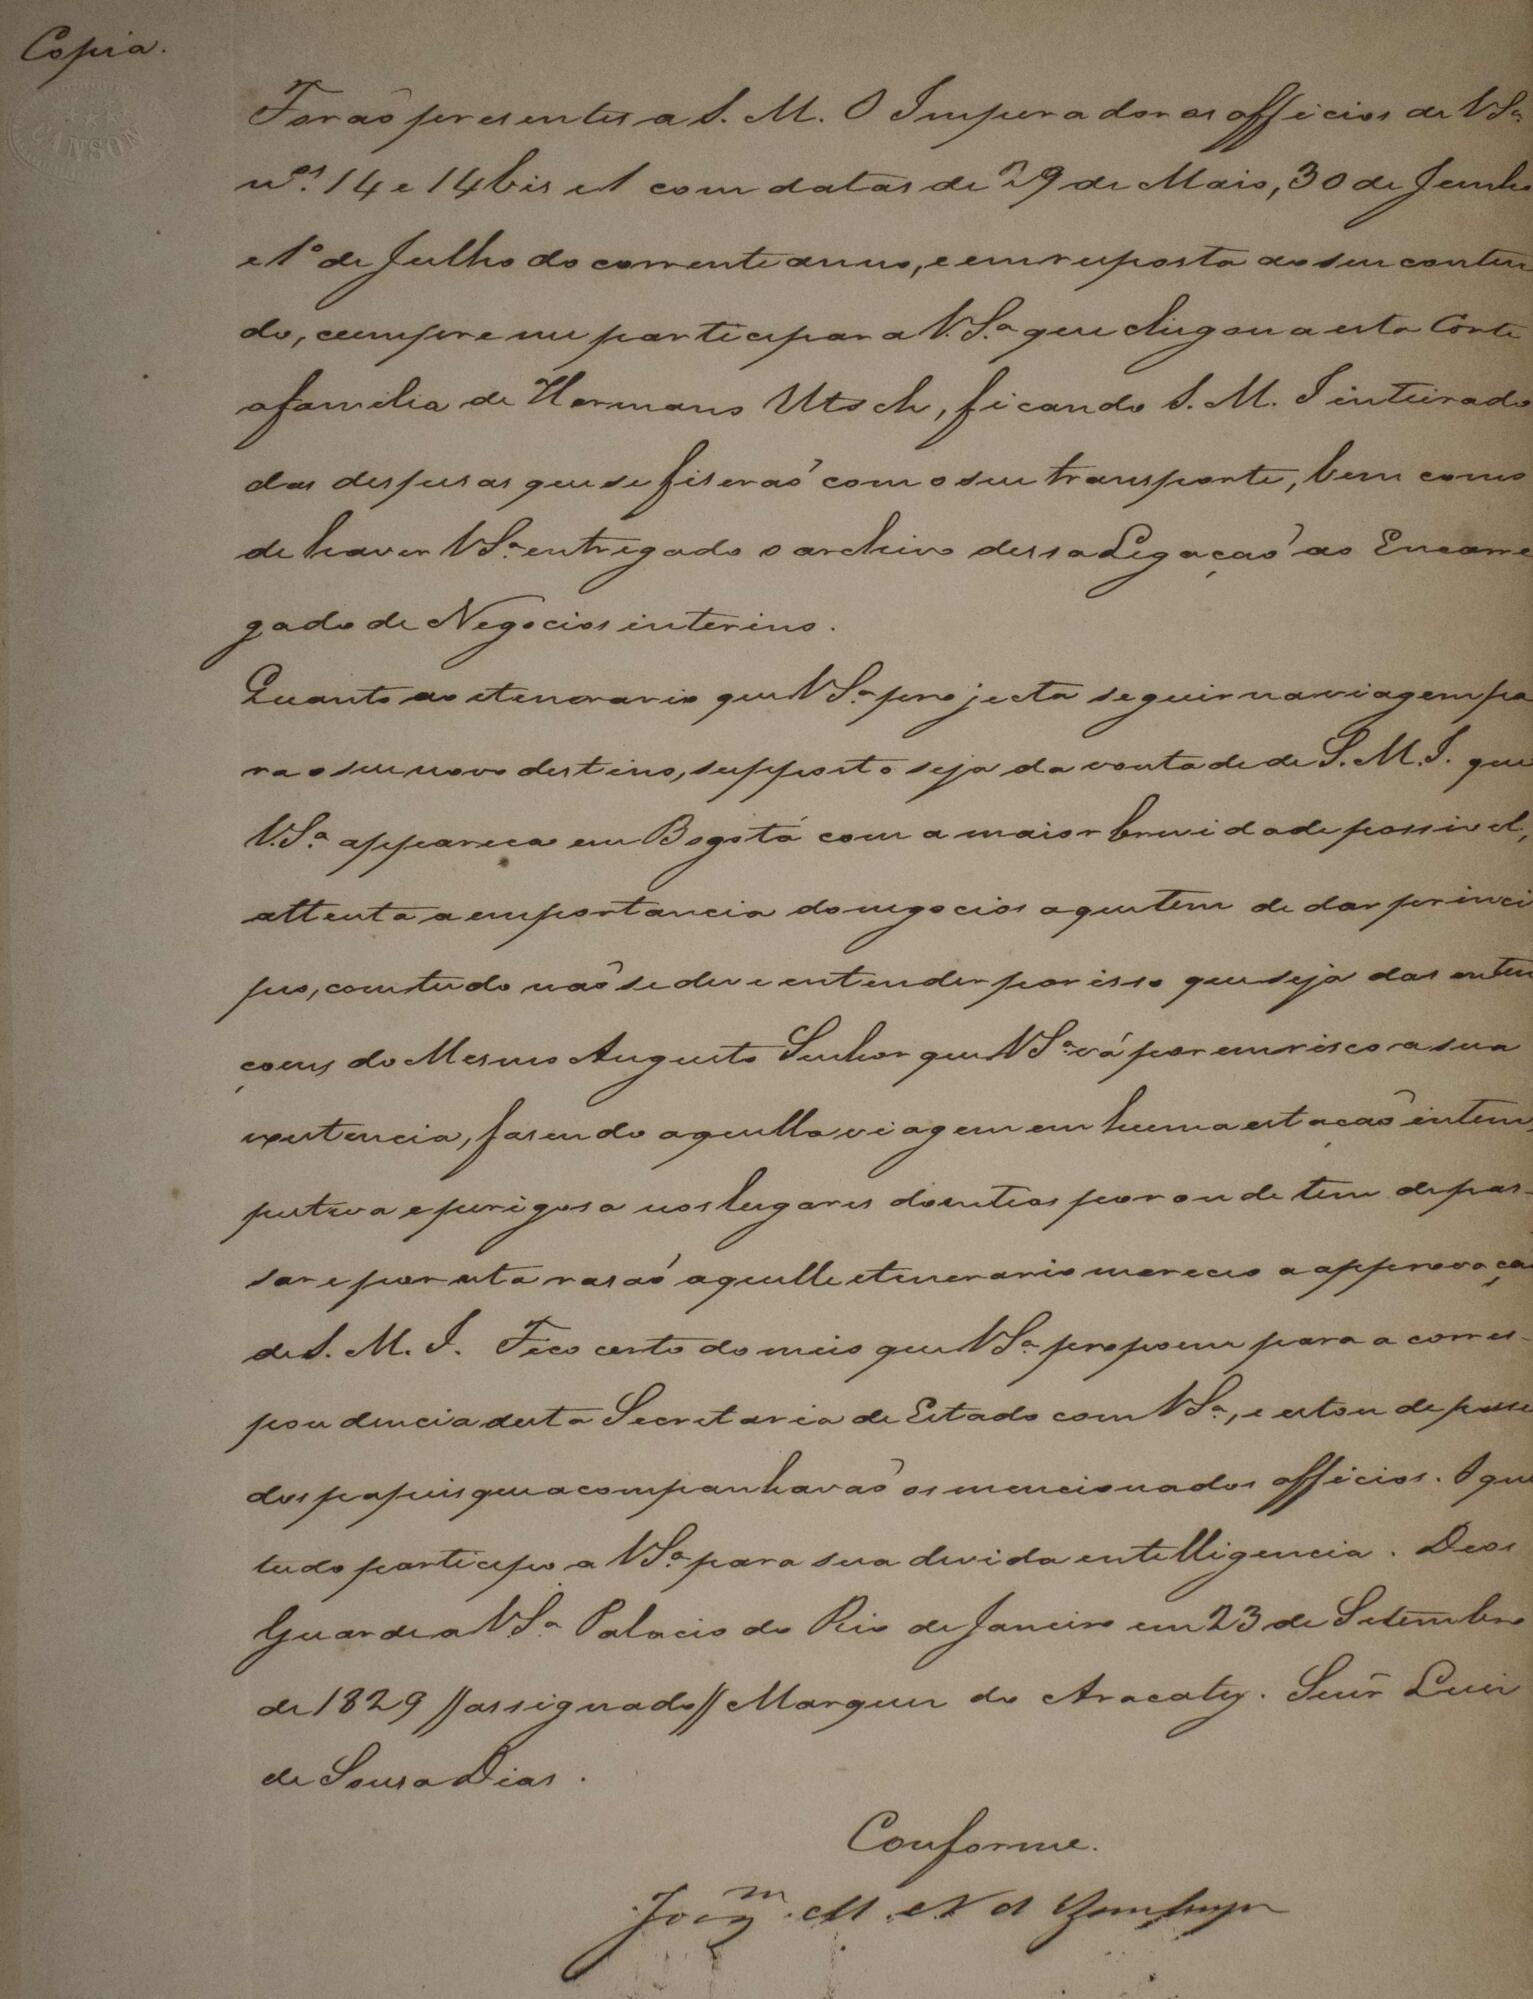 Copia.
ANSON
Forão presentes a S. M. O Imperador os officios de VSª
nºs. 14 e 14 bis e 1 com datas de 29 de Maio, 30 de Junho
e 1º de Julho do corrente anno, e em resposta ao seu conteu
do, cumpre me participar a V.Sª que chegou a esta Corte
a familia de Hermano Utsch, ficando S. M. I inteirado
das despesas que se fiserão com o seu transporte, bem como
de haver VSª entregado o archivo dessa Legação ao Encarre
gado de Negocios interino.
Quanto ao itenerario que VSª projecta seguir na viagem pa
ra o seu novo destino, supposto seja da vontade de S. M. I. que
V.Sª appareça em Bogotá com a maior brevidade possivel,
attenta a importancia do negocios a que tem de dar princi
pio, comtudo não se deve entender por isso que seja das inten
çoens do Mesmo Augusto Senhor que VSª vá por em risco a sua
existencia, fasendo aquella viagem em huma estação intem
pestiva e perigosa nos lugares doentios por onde tem de pas-
sar e por esta rasão aquelle itenerario mereceo a approvaçaõ
de S. M. I. Fico certo do meio que VSª propoem para a corres-
pondencia desta Secretaria de Estado com VSª, e estou de posse
dos papeis que acompanhavão os mencionados officios. O que
tudo participo a VSª para sua devida intelligencia. Deos
Guarde a V.Sª Palacio do Rio de Janeiro em 23 de Setembro
de 1829 // assignado // Marquez do Aracaty. Senr̃ Luiz
de Sousa Dias.
Conforme.
Joaqm. M. N d